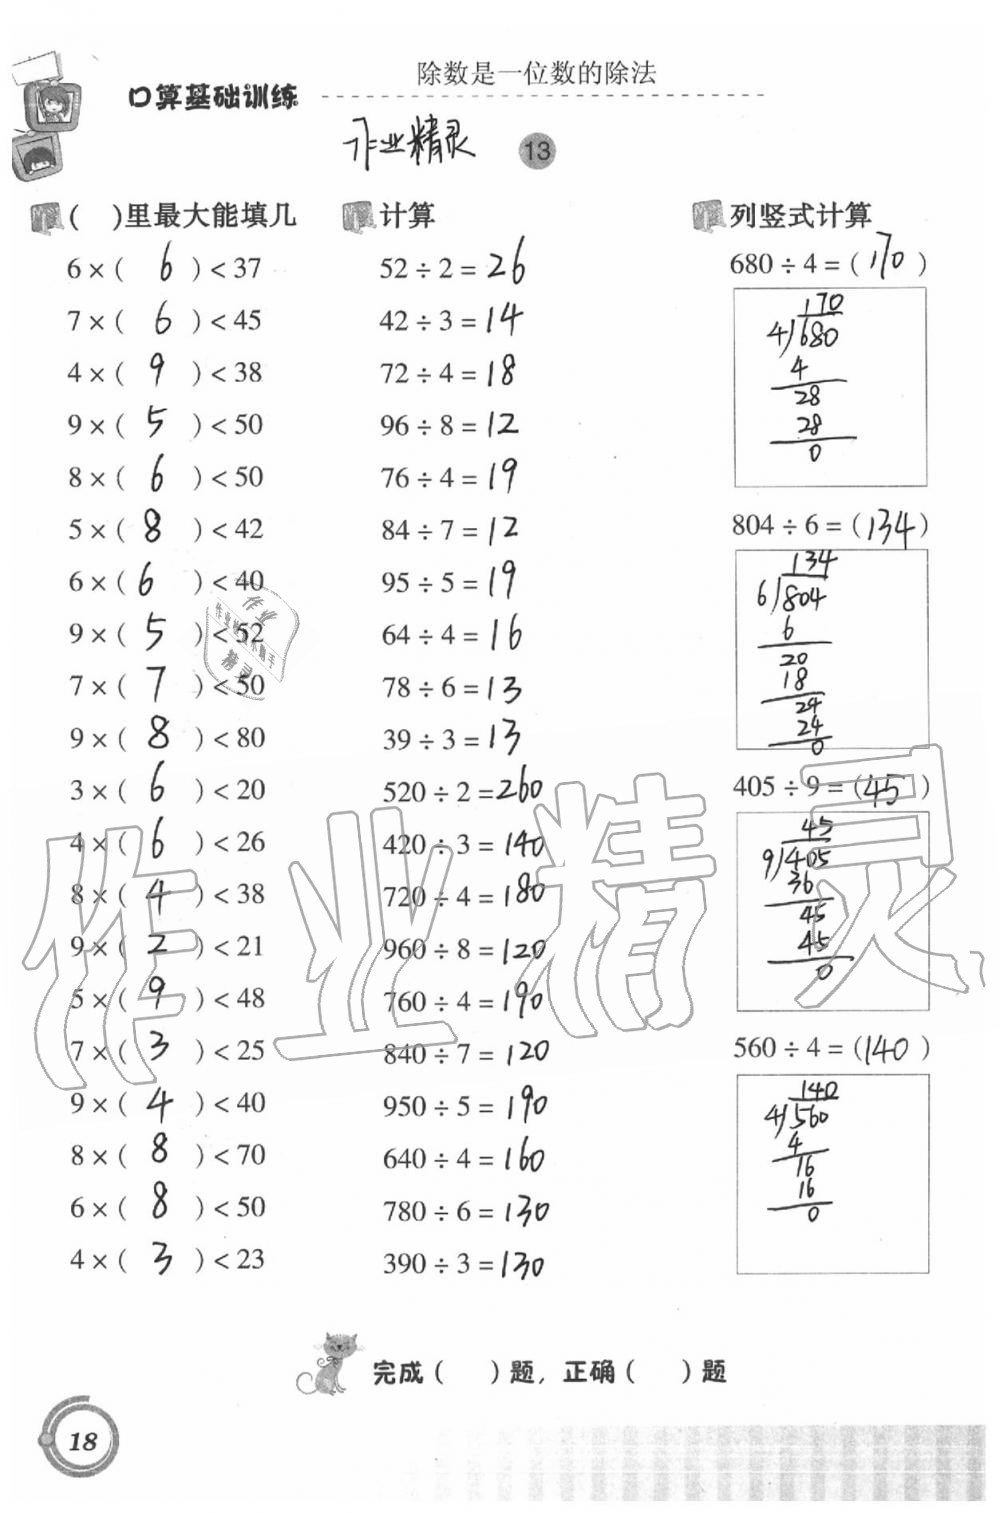 除数是一位数的除法
口算基础训练
作业精灵
13
( )里最大能填几
6×( 6 )<37
7×( 6 )<45
4×( 9 )<38
9×( 5 )<50
8×( 6 )<50
5×( 8 )<42
6×( 6 )<40
9×( 5 )<52
7×( 7 )<50
9×( 8 )<80
3×( 6 )<20
4×( 6 )<26
8×( 4 )<38
9×( 2 )<21
5×( 9 )<48
7×( 3 )<25
9×( 4 )<40
8×( 8 )<70
6×( 8 )<50
4×( 3 )<23
计算
52÷2=26
42÷3=14
72÷4=18
96÷8=12
76÷4=19
84÷7=12
95÷5=19
64÷4=16
78÷6=13
39÷3=13
520÷2=260
420÷3=140
720÷4=180
960÷8=120
760÷4=190
840÷7=120
950÷5=190
640÷4=160
780÷6=130
390÷3=130
列竖式计算
680÷4=(170)
170
4)680
4
28
28
0
804÷6=(134)
134
6)804
6
20
18
24
24
0
405÷9=(45)
45
9)405
36
45
45
0
560÷4=(140)
140
4)560
4
16
16
0
作业
精灵
作业精灵
完成( )题，正确( )题
18